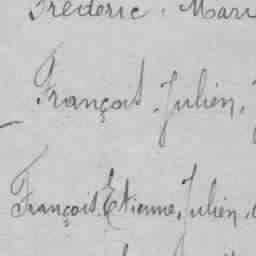 Frédéric, Mari
François, Julien,
François, Etienne, Julien,